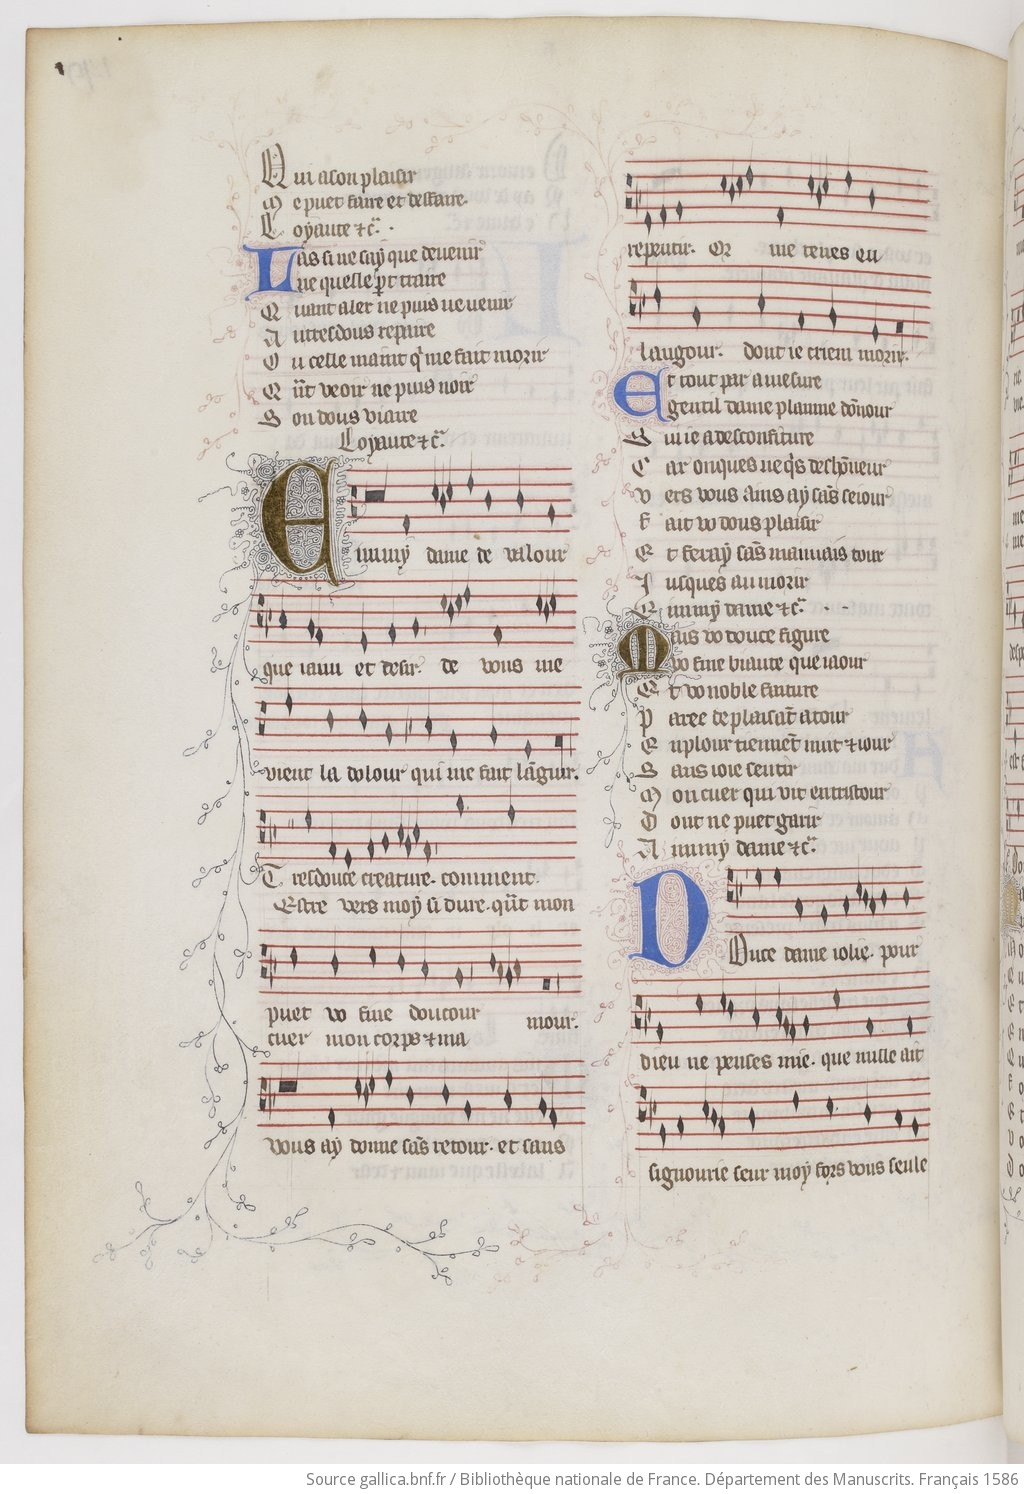 Qui a son plaisir
Me puet faire et deffaire.
Loyaute &c̃.
Las si ne say que devenir
Ne quelle p̱t traire
Quant aler ne puis ne venir
Au tresdous repaire
Ou celle maint q̇ me fait morir
Q̃nt veoir ne puis n'oir
Son dous viaire
Loyaute &c̃.
Aimmy dame de valour
que j'aim et desir. de vous me
vient la dolour qui me fait lãguir.
Tresdouce creature. comment
Estre vers moy si dure. q̃nt mon
puet vo fine doucour
mour.
cuer mon corps & ma
Vous ay donne sãs retour. et sans
repentir. Or me tenes en
langour. dont je crieim morir.
Et tout par amesure
gentil dame plainne dõnour
Sui je a desconfiture
Car onques ne q̇s deshõneur
Vers vous ains ay sãs sejour
Fait vo dous plaisir
Et feray sãs mauvais tour
Jusques au morir
Aimmy dame &c̃.
Mais vo douce figure
Vo fine biaute que j'aour
Et vo noble faiture
Paree de plaisãt atour
En plour tiennẽt nuit & jour
Sans joie sentir
Mon cuer qui vit en tristour
Dont ne puet garir
Aimmy dame &c̃.
Douce dame jolie. pour
dieu ne penses mie. que nulle ait
signourie seur moy fors vous seule
Source gallica.bnf.fr / Bibliothèque nationale de France. Département des Manuscrits. Français 1586